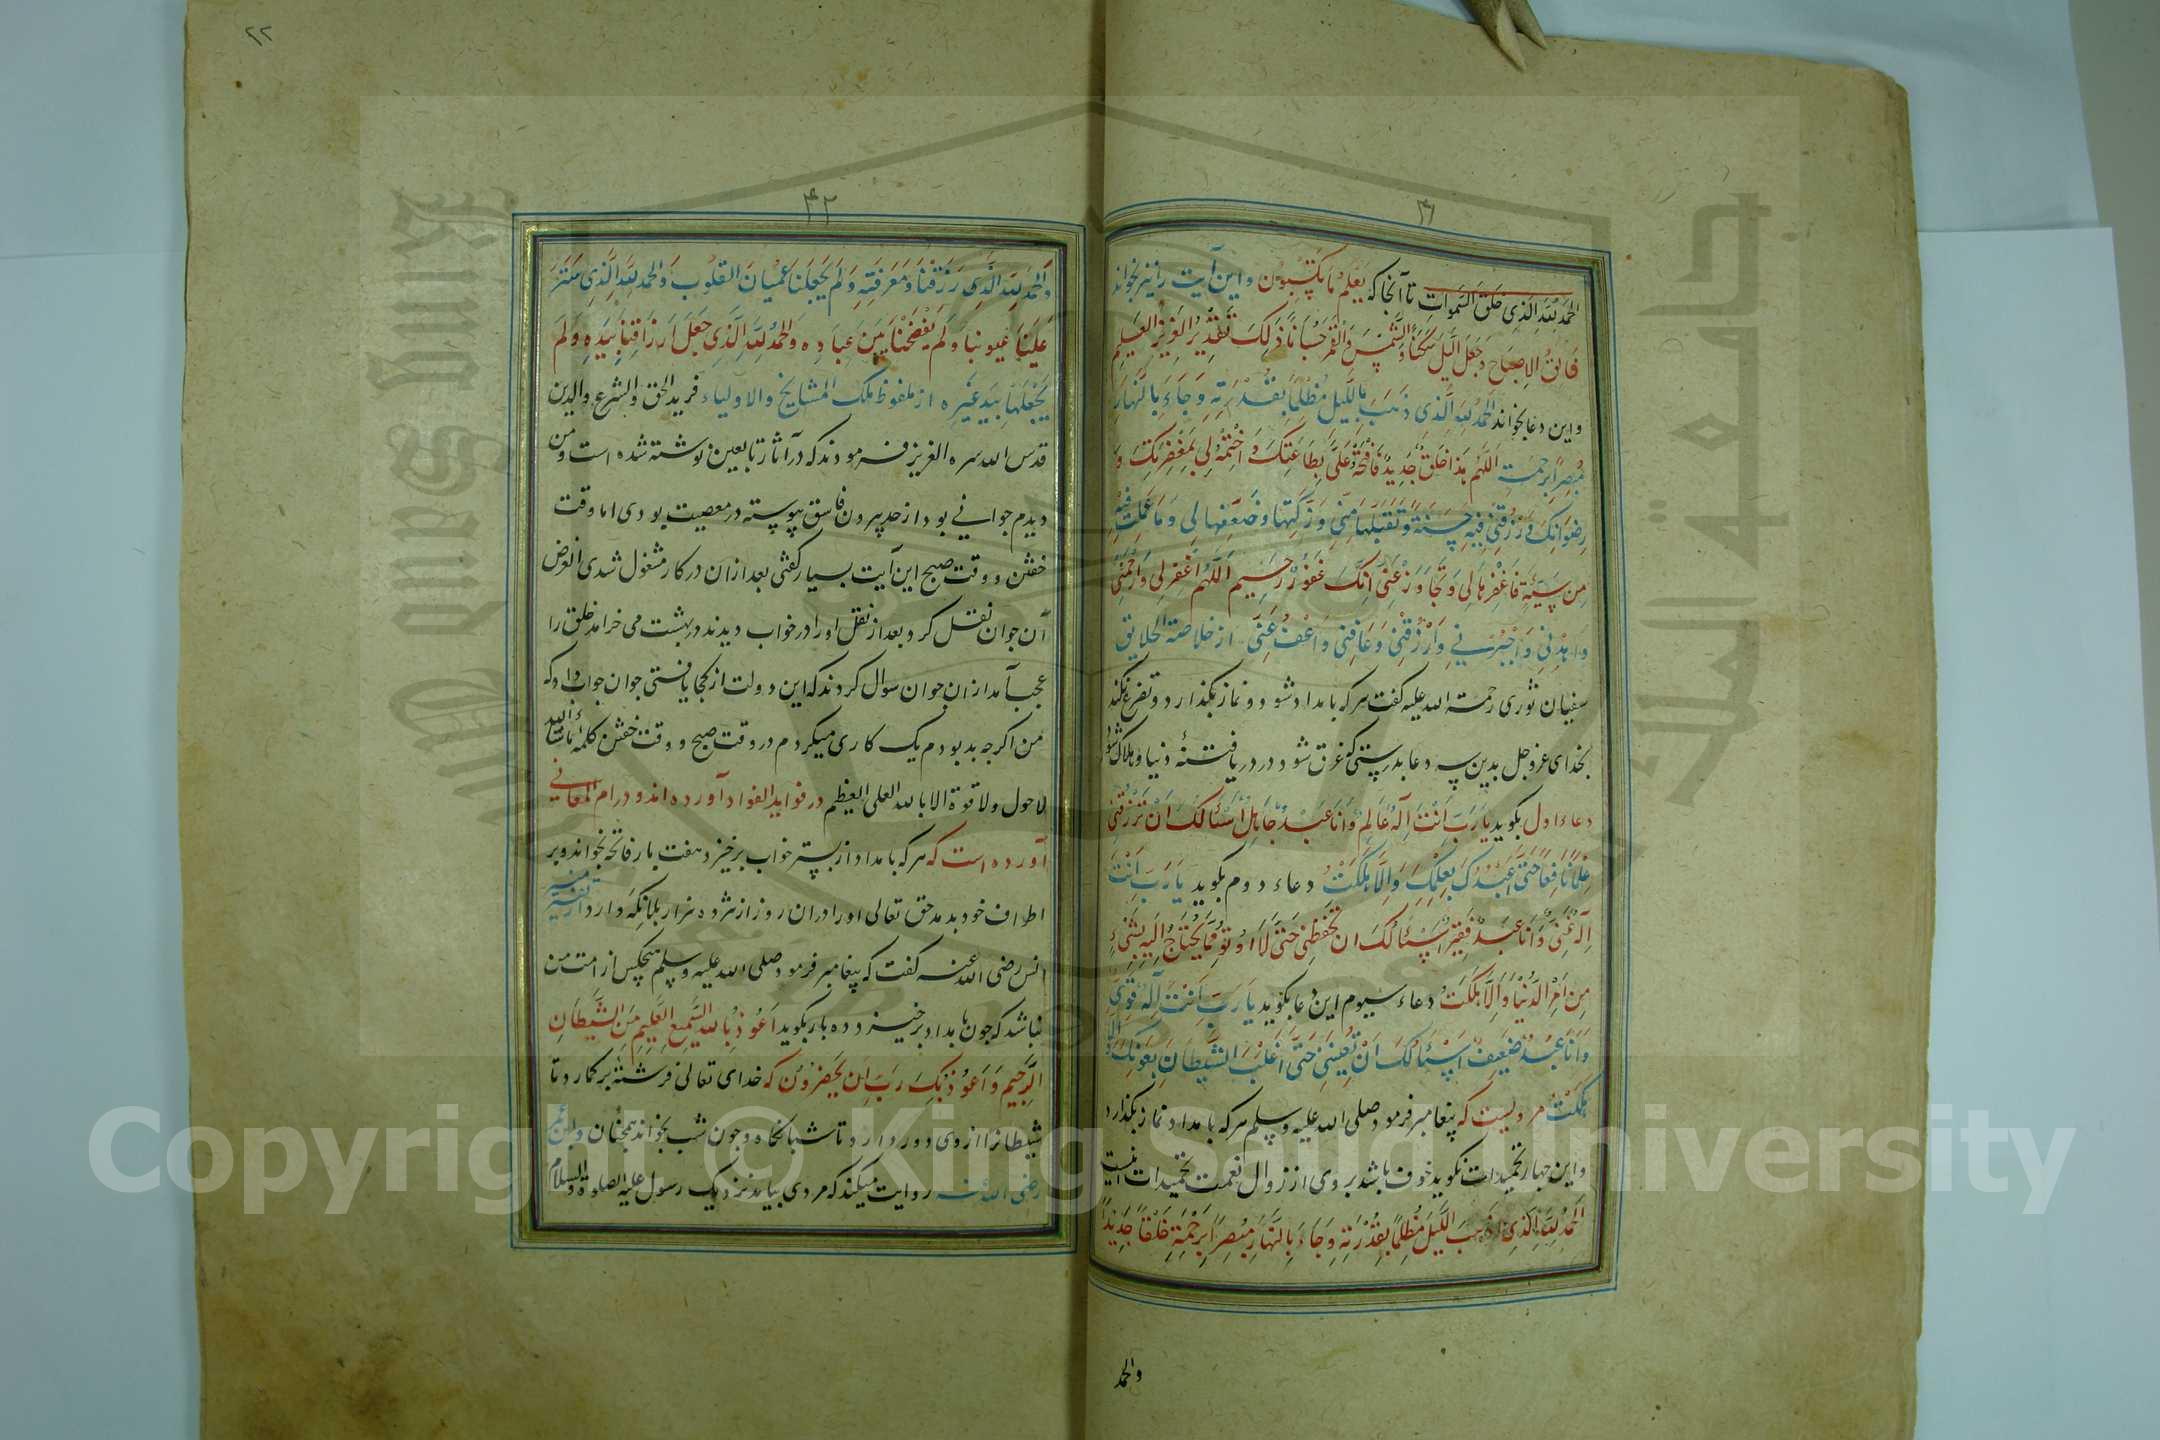 ۴۱
الحمد لله الذی خلق السموات تا آنجا که یعلم ما تکسبون و این آیت را نیز بخواند
فَالِقُ الاِصباح وَجَعَلَ الَّیلَ سَکَناً وَالشَّمسَ وَالقَمَرَ حُسبَاناً ذَلِکَ تَقدِیرُ العَزِیزِ العَلِیمِ
و این دعا بخواند الحَمدُ لِلّه الَّذِی ذَهَبَ بِاللَّیلِ مُظلِمًا بِقُدرَتِهِ وَجَاءَ بِالنَّهَارِ
مُبصِراً بِرَحمَتِهِ اللّهُمَّ هَذَا خَلقٌ جَدِیدٌ فَافتَحهُ عَلَیَّ بِطَاعَتِکَ وَاختِمهُ لِی بِمَغفِرَتِکَ وَ
رِضوَانِکَ وَارزُقنِی فِیهِ حَسَنَةً وَتَقَبَّلهَا مِنِّی وَزَکِّهَا وَضَعِّفهَا لِی وَمَا عَمِلتُ فِیهِ
مِن سَیِّئَةٍ فَاغفِرهَا لِی وَتَجَاوَز عَنِّی اِنَّکَ غَفُورٌ رَحِیم اَللّهُمَّ اغفِر لِی وَارحَمنِی
وَاهدِنِی وَاجبُرنِی وَارزُقنِی وَعَافِنِی وَاعفُ عَنِّی از خلاصة الحلایق
سفیان ثوری رحمة الله علیه گفت هر که بامداد شود و نماز بگذارد و تضرع نکند
بخدای عز و جل بدین سه دعا بدرستی که غرق شود در دریا فتنهٔ دنیا و هلاک شود
دعاء اول بگوید یَارَبِّ اَنتَ اِلهٌ عَالِمٌ وَاَنَا عَبدٌ جَاهِلٌ اَسئَالُکَ اَن تَرزُقَنِی
عِلمًا نَافِعًا حَتَّی اَعبُدَکَ بِعِلمِکَ وَاِلَّا هَلَکتُ دعاء دوم بگوید یَارَبِّ اَنتَ
اِلهٌ غَنِیٌّ وَاَنَا عَبدٌ فَقِیرٌ اَسئَالُکَ ان تَحفَظَنِی حَتَّی لَا
مِن اَمرِ الدُّنیَا وَاِلَّا هَلَکتُ دعاء سیوم این دعا بگوید یَارَبِّ اَنتَ اِلهٌ قَوِیٌّ
وَاَنَا عَبدٌ ضَعِیفٌ اَسئَالُکَ اَن تُعِینَنِی حَتَّی اَغلِبَ الشَّیطَانَ بِعَونِکَ وَالا
هَلَکتُ مرویست که پیغامبر فرمود صلی الله علیه وسلم هر که بامداد نماز بگذارد
و این چهار تحمیدات نگوید خوف باشد بروی از زوال نعمت تحمیدات اینست
اَلحَمدُ لِلّهِ الَّذِی اذهَبَ اللَّیلَ مُظلِمًا بِقُدرَتِهِ وَجَاءَ بِالنَّهَارِ مُبصِرًا بِرَحمَتِهِ خَلقاً جَدِیداً
والحمد
۲۲
۴۲
وَالحَمدُ لِلّهِ الَّذِی رَزَقَنَا وَمَعرِفَتِهِ وَلَم یَجعَلنَا عُمیَانَ القُلُوبِ وَالحَمدُ لِلّهِ الَّذِی سَتَرَ
عَلَینَا عُیُوبَنَا وَلَم یَفضَحنَا بَینَ عِبَادِهِ وَالحَمدُ لِلّهِ الَّذِی جَعَلَ اَرزَاقَنَا بِیَدِهِ وَلَم
یَجعَلهَا بِیَدِ غَیرِهِ از ملفوظ ملک المشایخ والاولیاء فرید الحق والشرع والدین
قدس الله سره العزیز فرمودند که در آثار تابعین نوشته شده است و من
دیدم جوانی بود از حد بیرون فاسق پیوسته در معصیت بودی اما وقت
خفتن و وقت صبح این آیت بسیار گفتی بعد ازان در کار مشغول شدی الغرض
آن جوان نقل کرد بعد از نقل او را در خواب دیدند در بهشت می خرامد خلق را
عجب آمد ازان جوان سوال کردند که این دولت از کجا یافتی جوان جواب داد که
من اگرچه بد بودم یک کاری میکردم در وقت صبح و وقت خفتن کلمه ماشاالله
لا حول ولا قوة الا بالله العلی العظیم در فواید الفواد آورده اند و در ام المعانی
آورده است که هر که بامداد از بستر خواب برخیزد هفت بار فاتحه بخواند و بر
اطراف خود بدمد حق تعالی او را دران روز از هژده هزار بلا نگه دارد از تفسیر منیر
انس رضی الله عنه گفت که پیغامبر فرمود صلی الله علیه وسلم هیچکس از امت من
نباشد که چون بامداد برخیزد و ده بار بگوید اَعُوذُ بِاللهِ السَّمِیعِ العَلِیمِ مِنَ الشَّیطَانِ
الرَّجِیمِ وَاَعُوذُ بِکَ رَبِّ اَن یَحضُرُونِ که خدای تعالی فرشته برگمارد تا
شیطان را از وی دور دارد تا شبانگاه و چون شب بخواند همچنان و ابن عمر
رضی الله عنه روایت میکند که مردی بیامد نزدیک رسول علیه الصلوة والسلام
Copyright © King Saud University
King Saud University
جامعة الملك سعود